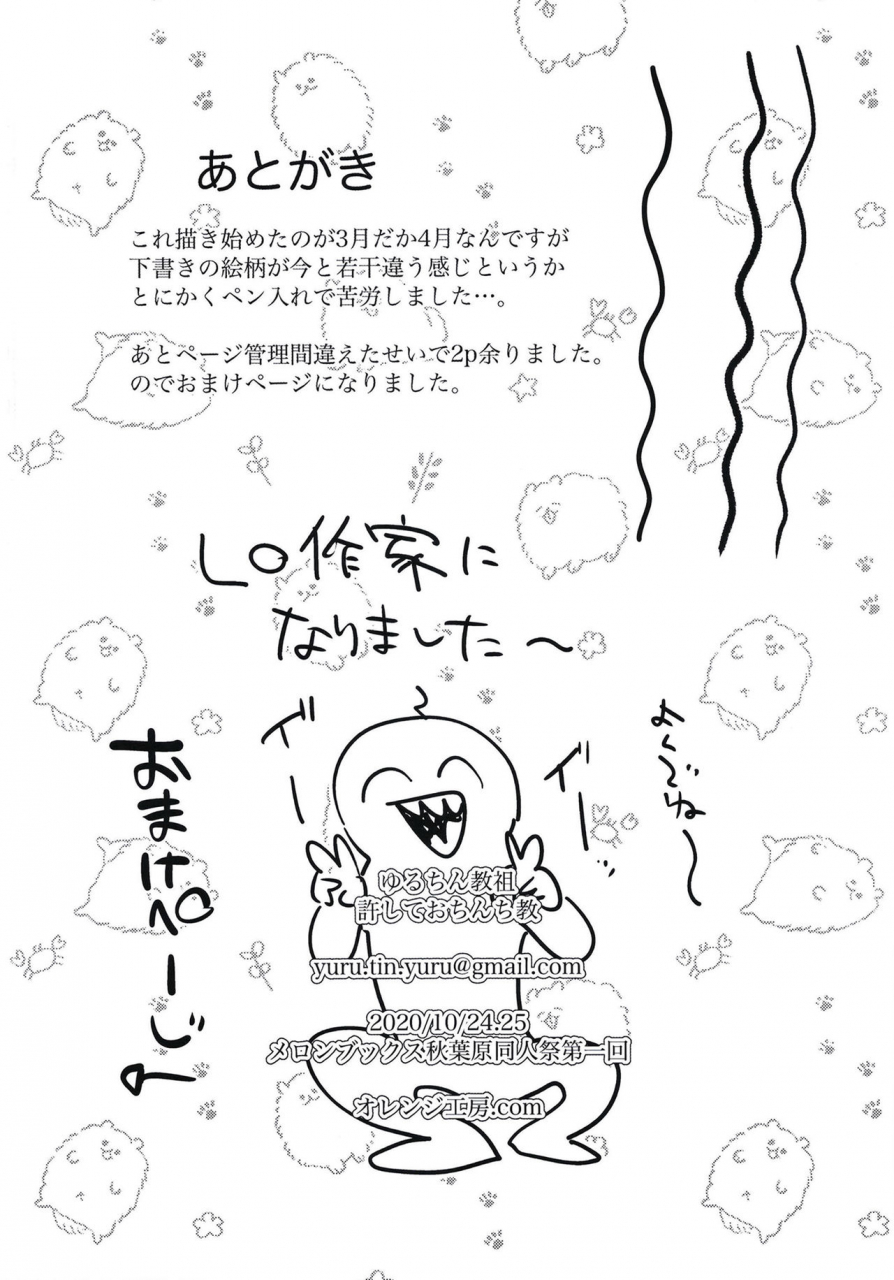 あとがき
これ描き始めたのが3月だか4月なんですが
下書きの絵柄が今と若干違う感じというか
とにかくペン入れで苦労しました…。
あとページ管理間違えたせいで2p余りました。
のでおまけページになりました。
LO作家に
なりました～
イェー
イェー
よんでね～
おまけぺーじ
ゆるちん教祖
許しておちんち教
yuru.tin.yuru@gmail.com
2020/10/24.25
メロンブックス秋葉原同人祭第一回
オレンジ工房.com